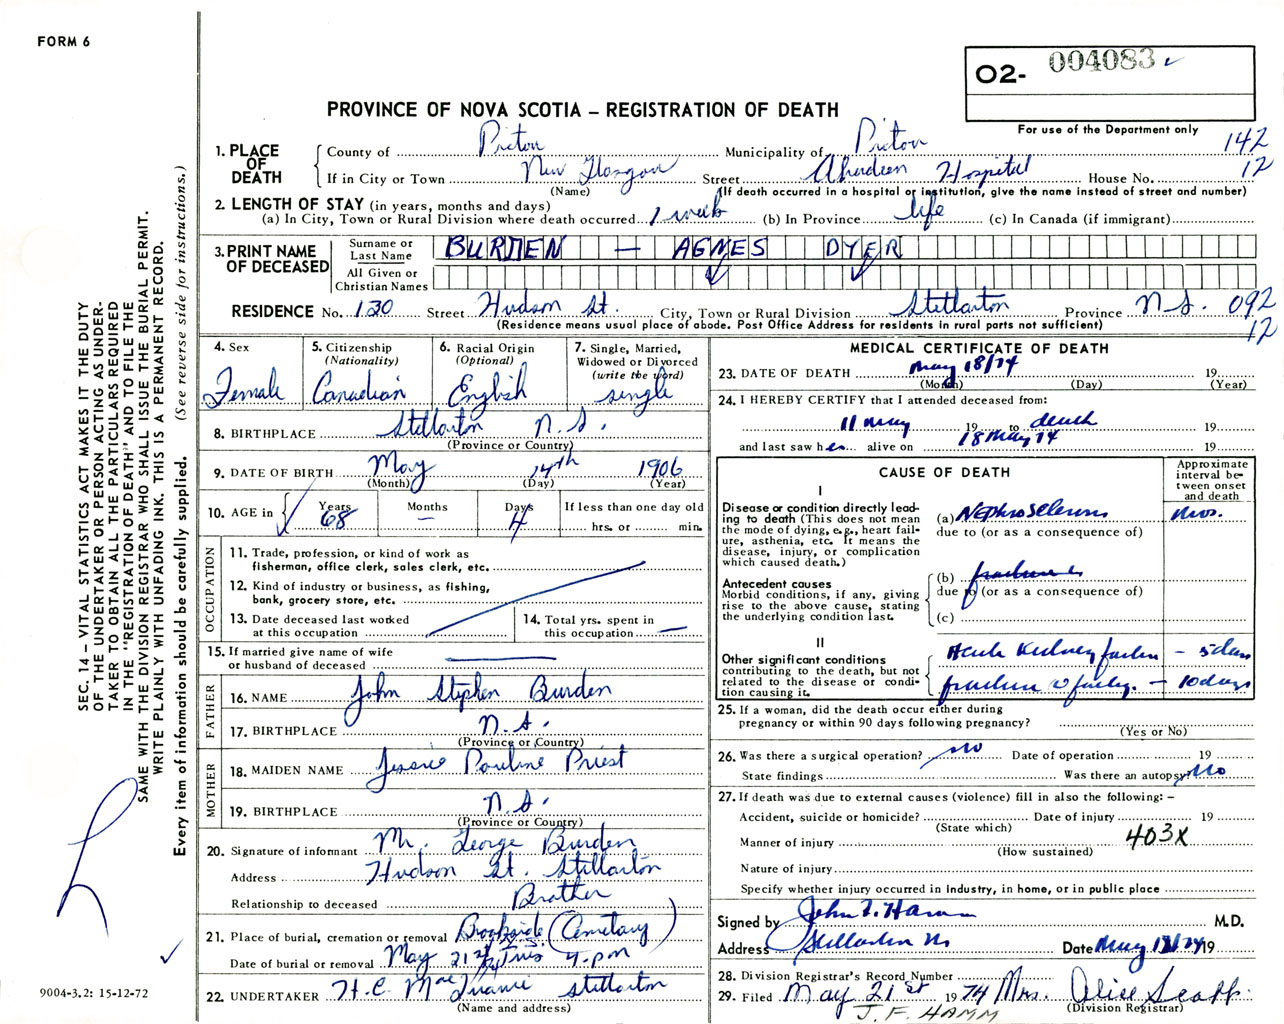 FORM 6
O2- 004083
For use of the Department only
PROVINCE OF NOVA SCOTIA – REGISTRATION OF DEATH
142
12
1. PLACE OF DEATH
County of Pictou Municipality of Pictou
If in City or Town New Glasgow Street Aberdeen Hospital House No.
(Name) (If death occurred in a hospital or institution, give the name instead of street and number)
2. LENGTH OF STAY (in years, months and days)
(a) In City, Town or Rural Division where death occurred 1 week (b) In Province life (c) In Canada (if immigrant)
3. PRINT NAME OF DECEASED
Surname or Last Name BURDEN — AGNES DYER
All Given or Christian Names
RESIDENCE No. 130 Street Hudson St. City, Town or Rural Division Stellarton Province N.S. 092
(Residence means usual place of abode. Post Office Address for residents in rural parts not sufficient) 12
4. Sex Female
5. Citizenship (Nationality) Canadian
6. Racial Origin (Optional) English
7. Single, Married, Widowed or Divorced (write the word) single
8. BIRTHPLACE Stellarton N.S.
(Province or Country)
9. DATE OF BIRTH May 14th 1906
(Month) (Day) (Year)
10. AGE in Years 68 Months — Days 4 If less than one day old hrs. or min.
OCCUPATION
11. Trade, profession, or kind of work as fisherman, office clerk, sales clerk, etc.
12. Kind of industry or business, as fishing, bank, grocery store, etc.
13. Date deceased last worked at this occupation
14. Total yrs. spent in this occupation —
15. If married give name of wife or husband of deceased —
FATHER
16. NAME John Stephen Burden
17. BIRTHPLACE N.S.
(Province or Country)
MOTHER
18. MAIDEN NAME Jessie Pauline Priest
19. BIRTHPLACE N.S.
(Province or Country)
20. Signature of informant Mr. George Burden
Address Hudson St. Stellarton
Relationship to deceased Brother
21. Place of burial, cremation or removal Brookside (Cemetary)
Date of burial or removal May 21st 74 Tues 4 pm
22. UNDERTAKER H.C. MacQuarrie Stellarton
(Name and address)
MEDICAL CERTIFICATE OF DEATH
23. DATE OF DEATH May 18/74 19
(Month) (Day) (Year)
24. I HEREBY CERTIFY that I attended deceased from:
11 May 19 to death 19
and last saw her alive on 18 May 74 19
CAUSE OF DEATH
Approximate interval between onset and death
I
Disease or condition directly leading to death (This does not mean the mode of dying, e.g., heart failure, asthenia, etc. It means the disease, injury, or complication which caused death.)
(a) Nephrosclerosis mos.
due to (or as a consequence of)
Antecedent causes
Morbid conditions, if any, giving rise to the above cause, stating the underlying condition last.
(b) fracture
due to (or as a consequence of)
(c)
II
Other significant conditions contributing to the death, but not related to the disease or condition causing it.
Acute Kidney failure – 5 days
fracture – 10 days
25. If a woman, did the death occur either during pregnancy or within 90 days following pregnancy?
(Yes or No)
26. Was there a surgical operation? no Date of operation 19
State findings Was there an autopsy No
27. If death was due to external causes (violence) fill in also the following: –
Accident, suicide or homicide? Date of injury 19
(State which)
Manner of injury 403X
(How sustained)
Nature of injury
Specify whether injury occurred in Industry, in home, or in public place
Signed by John F. Hamm M.D.
Address Stellarton NS Date May 18/74 19
28. Division Registrar's Record Number
29. Filed May 21st 1974 Mrs. Alice Scott
(Division Registrar)
J.F. HAMM
SEC. 14 – VITAL STATISTICS ACT MAKES IT THE DUTY
OF THE UNDERTAKER OR PERSON ACTING AS UNDER-
TAKER TO OBTAIN ALL THE PARTICULARS REQUIRED
IN THE "REGISTRATION OF DEATH" AND TO FILE THE
SAME WITH THE DIVISION REGISTRAR WHO SHALL ISSUE THE BURIAL PERMIT.
WRITE PLAINLY WITH UNFADING INK. THIS IS A PERMANENT RECORD.
Every item of information should be carefully supplied. (See reverse side for instructions.)
9004-3.2: 15-12-72